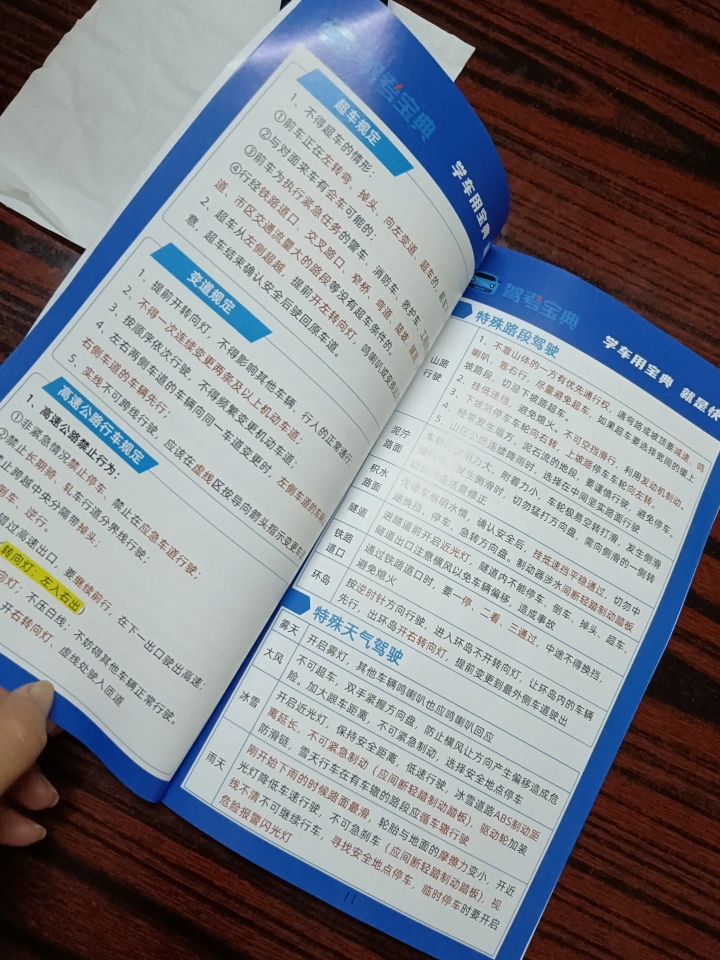 驾考宝典
学车用宝典
超车规定
1、不得超车的情形：
①前车正在左转弯、掉头、向左变道、超车的，
②与对面来车有会车可能的；
③前车为执行紧急任务的警车、消防车、救护车、
④行经铁路道口、交叉路口、窄桥、弯道、陡坡、
道、市区交通流量大的路段等没有超车条件的。
2、超车从左侧超越，提前开左转向灯，鸣喇叭或变
意，超车结束确认安全后驶回原车道。
变道规定
1、提前开转向灯，不得影响其他车辆、行人的正常通行
2、不得一次连续变更两条及以上机动车道；
3、按顺序依次行驶，不得频繁变更机动车道；
4、左右两侧车道的车辆向同一车道变更时，左侧车道的车
右侧车道的车辆先行；
5、实线不可跨线行驶，应该在虚线区按导向箭头指示变更车
高速公路行车规定
1、高速公路禁止行为：
①非紧急情况禁止停车、禁止在应急车道行驶；
②禁止长期骑、轧车行道分界线行驶；
止跨越中央分隔带掉头；
倒车、逆行。
错过高速出口，要继续前行，在下一出口驶出高速；
转向灯：左入右出
向灯；不压白线；不妨碍其他车辆正常行驶。
开右转向灯、虚线处驶入匝道
驾考宝典
学车用宝典 就是快
特殊路段驾驶
山路
行驶
1、不靠山体的一方有优先通行权，遇弯路或坡顶要减速、鸣
喇叭、靠右行，尽量避免超车，如果超车要选择宽阔的缓上
坡路段，切忌下坡路超车。
2、挂低速挡，避免熄火，不可空挡滑行，利用发动机制动。
3、下坡路停车车轮向右转，上坡路停车车轮向左转。
4、经常发生塌方，泥石流的地段，要谨慎行驶，避免停车。
5、山区公路连续降雨时，选择在中间坚实路面行驶
泥泞
路面
力大，附着力小，车轮极易空转打滑，发生侧滑
发生侧滑时，切勿猛打方向盘，需向侧滑的一侧转
适量修正
积水
路面
先停车查明水情，确认安全后，挂抵速挡平稳通过，切勿中
途换挡、停车、急转方向盘。制动器涉水间断轻踏制动踏板
隧道
进隧道前开启近光灯，隧道内不能停车、倒车、掉头、超车，
隧道出口注意横风以免车辆偏移，造成事故
铁路
道口
通过铁路道口时，要一停、二看、三通过，中途不得换挡，
避免熄火
环岛
按逆时针方向行驶，进入环岛不开转向灯，让环岛内的车辆
先行，出环岛开右转向灯，提前变更到最外侧车道驶出
特殊天气驾驶
雾天
开启雾灯，其他车辆鸣喇叭也应鸣喇叭回应
大风
不可超车，双手紧握方向盘，防止横风让方向产生偏移造成危
险。加大跟车距离，不可紧急制动，选择安全地点停车
冰雪
开启近光灯，保持安全距离，低速行驶，冰雪道路ABS制动距
离延长，不可紧急制动（应间断轻踏制动踏板），驱动轮加装
防滑链，雪天行车在有车辙的路段应循车辙行驶
雨天
刚开始下雨的时候路面最滑，轮胎与地面的摩擦力变小，开近
光灯降低车速行驶，不可急刹车（应间断轻踏制动踏板），视
线不清不可继续行车，寻找安全地点停车，临时停车时要开启
危险报警闪光灯
11